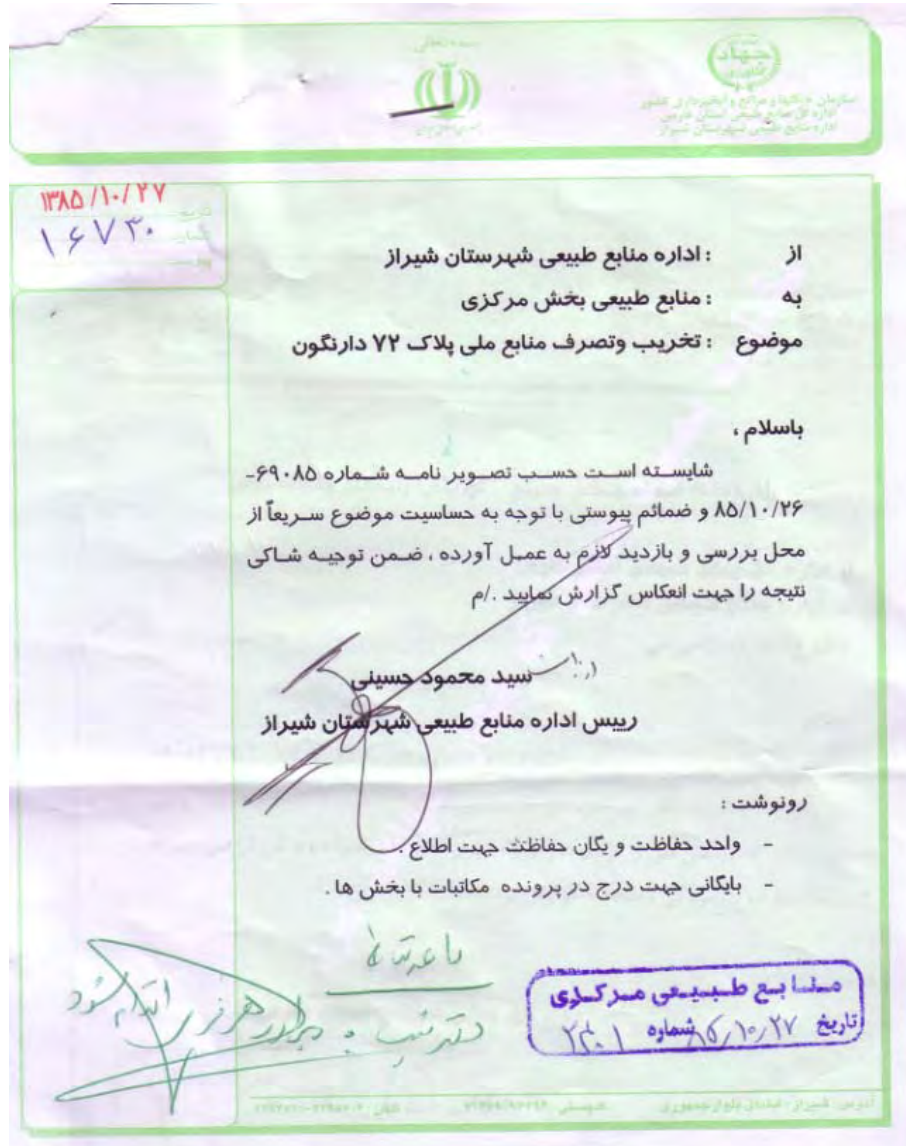 بسمه تعالی
جهاد
کشاورزی
سازمان جنگلها و مراتع و آبخیزداری کشور
اداره کل منابع طبیعی استان فارس
اداره منابع طبیعی شهرستان شیراز
۱۳۸۵/۱۰/۲۷
تاریخ
۱۶۷۳۰
شماره
از : اداره منابع طبیعی شهرستان شیراز
به : منابع طبیعی بخش مرکزی
موضوع : تخریب وتصرف منابع ملی پلاک ۷۲ دارنگون
باسلام ،
شایسته است حسب تصویر نامه شماره ۶۹۰۸۵-
۸۵/۱۰/۲۶ و ضمائم پیوستی با توجه به حساسیت موضوع سریعاً از
محل بررسی و بازدید لازم به عمل آورده ، ضمن توجیه شاکی
نتیجه را جهت انعکاس گزارش نمایید ./م
سید محمود حسینی
رییس اداره منابع طبیعی شهرستان شیراز
رونوشت :
- واحد حفاظت و یگان حفاظت جهت اطلاع .
- بایگانی جهت درج در پرونده مکاتبات با بخش ها .
منابع طبیعی مرکزی
تاریخ ۸۵/۱۰/۲۷ شماره ۲۳۰۱
دفتر ثبت
اقدام شود
آدرس: شیراز - خیابان بلوار جمهوری